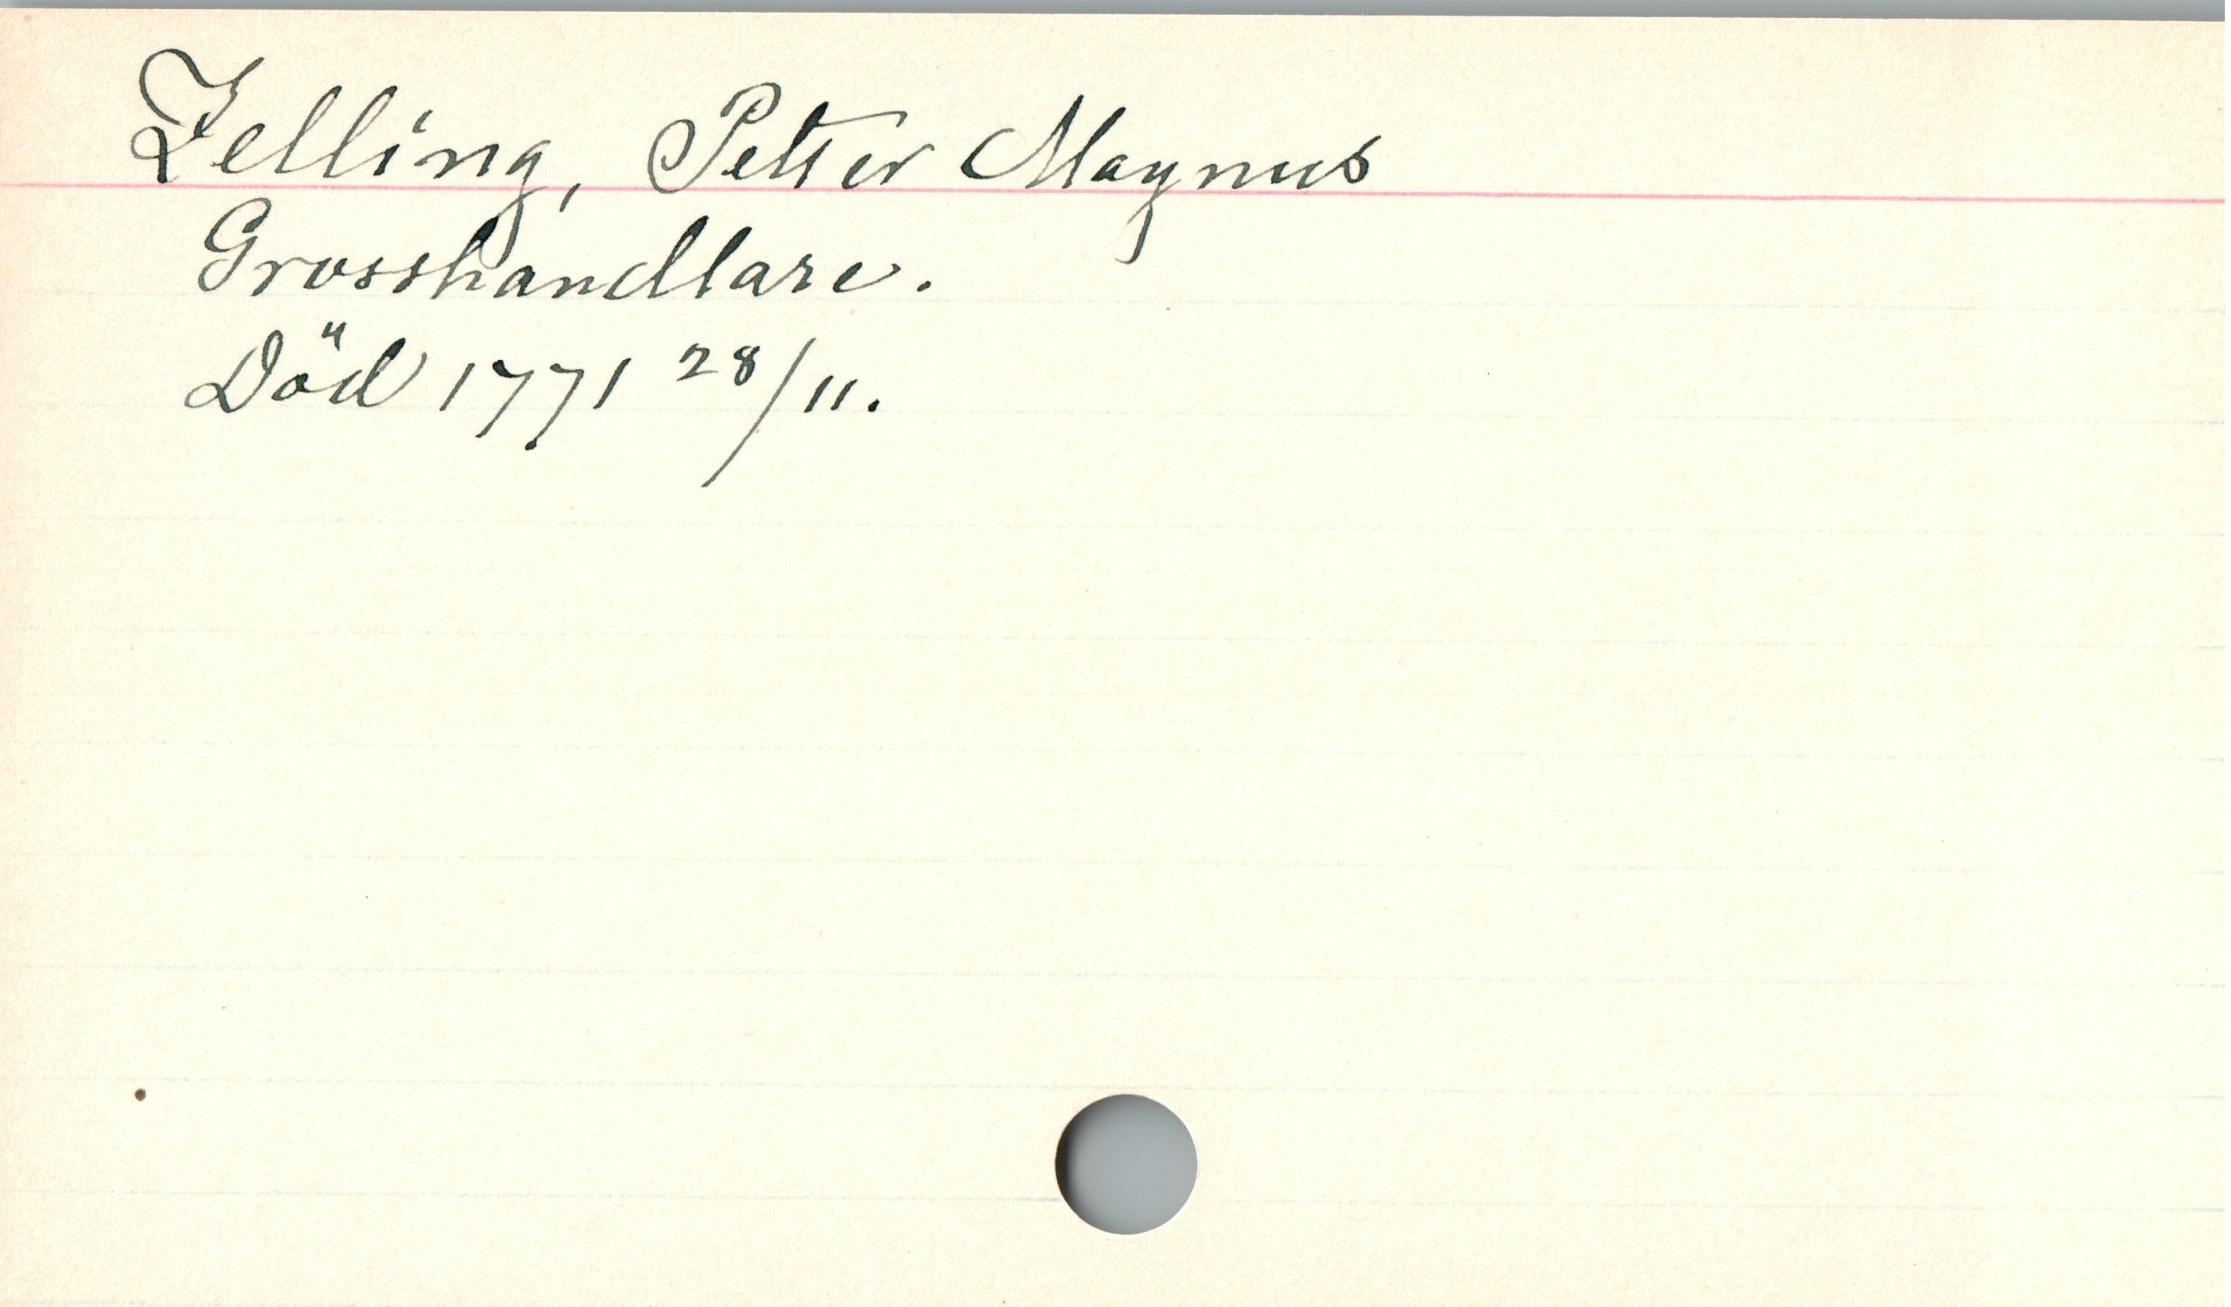 Zelling, Petter Magnus
Grosshandlare.
Död 1771 28/11.